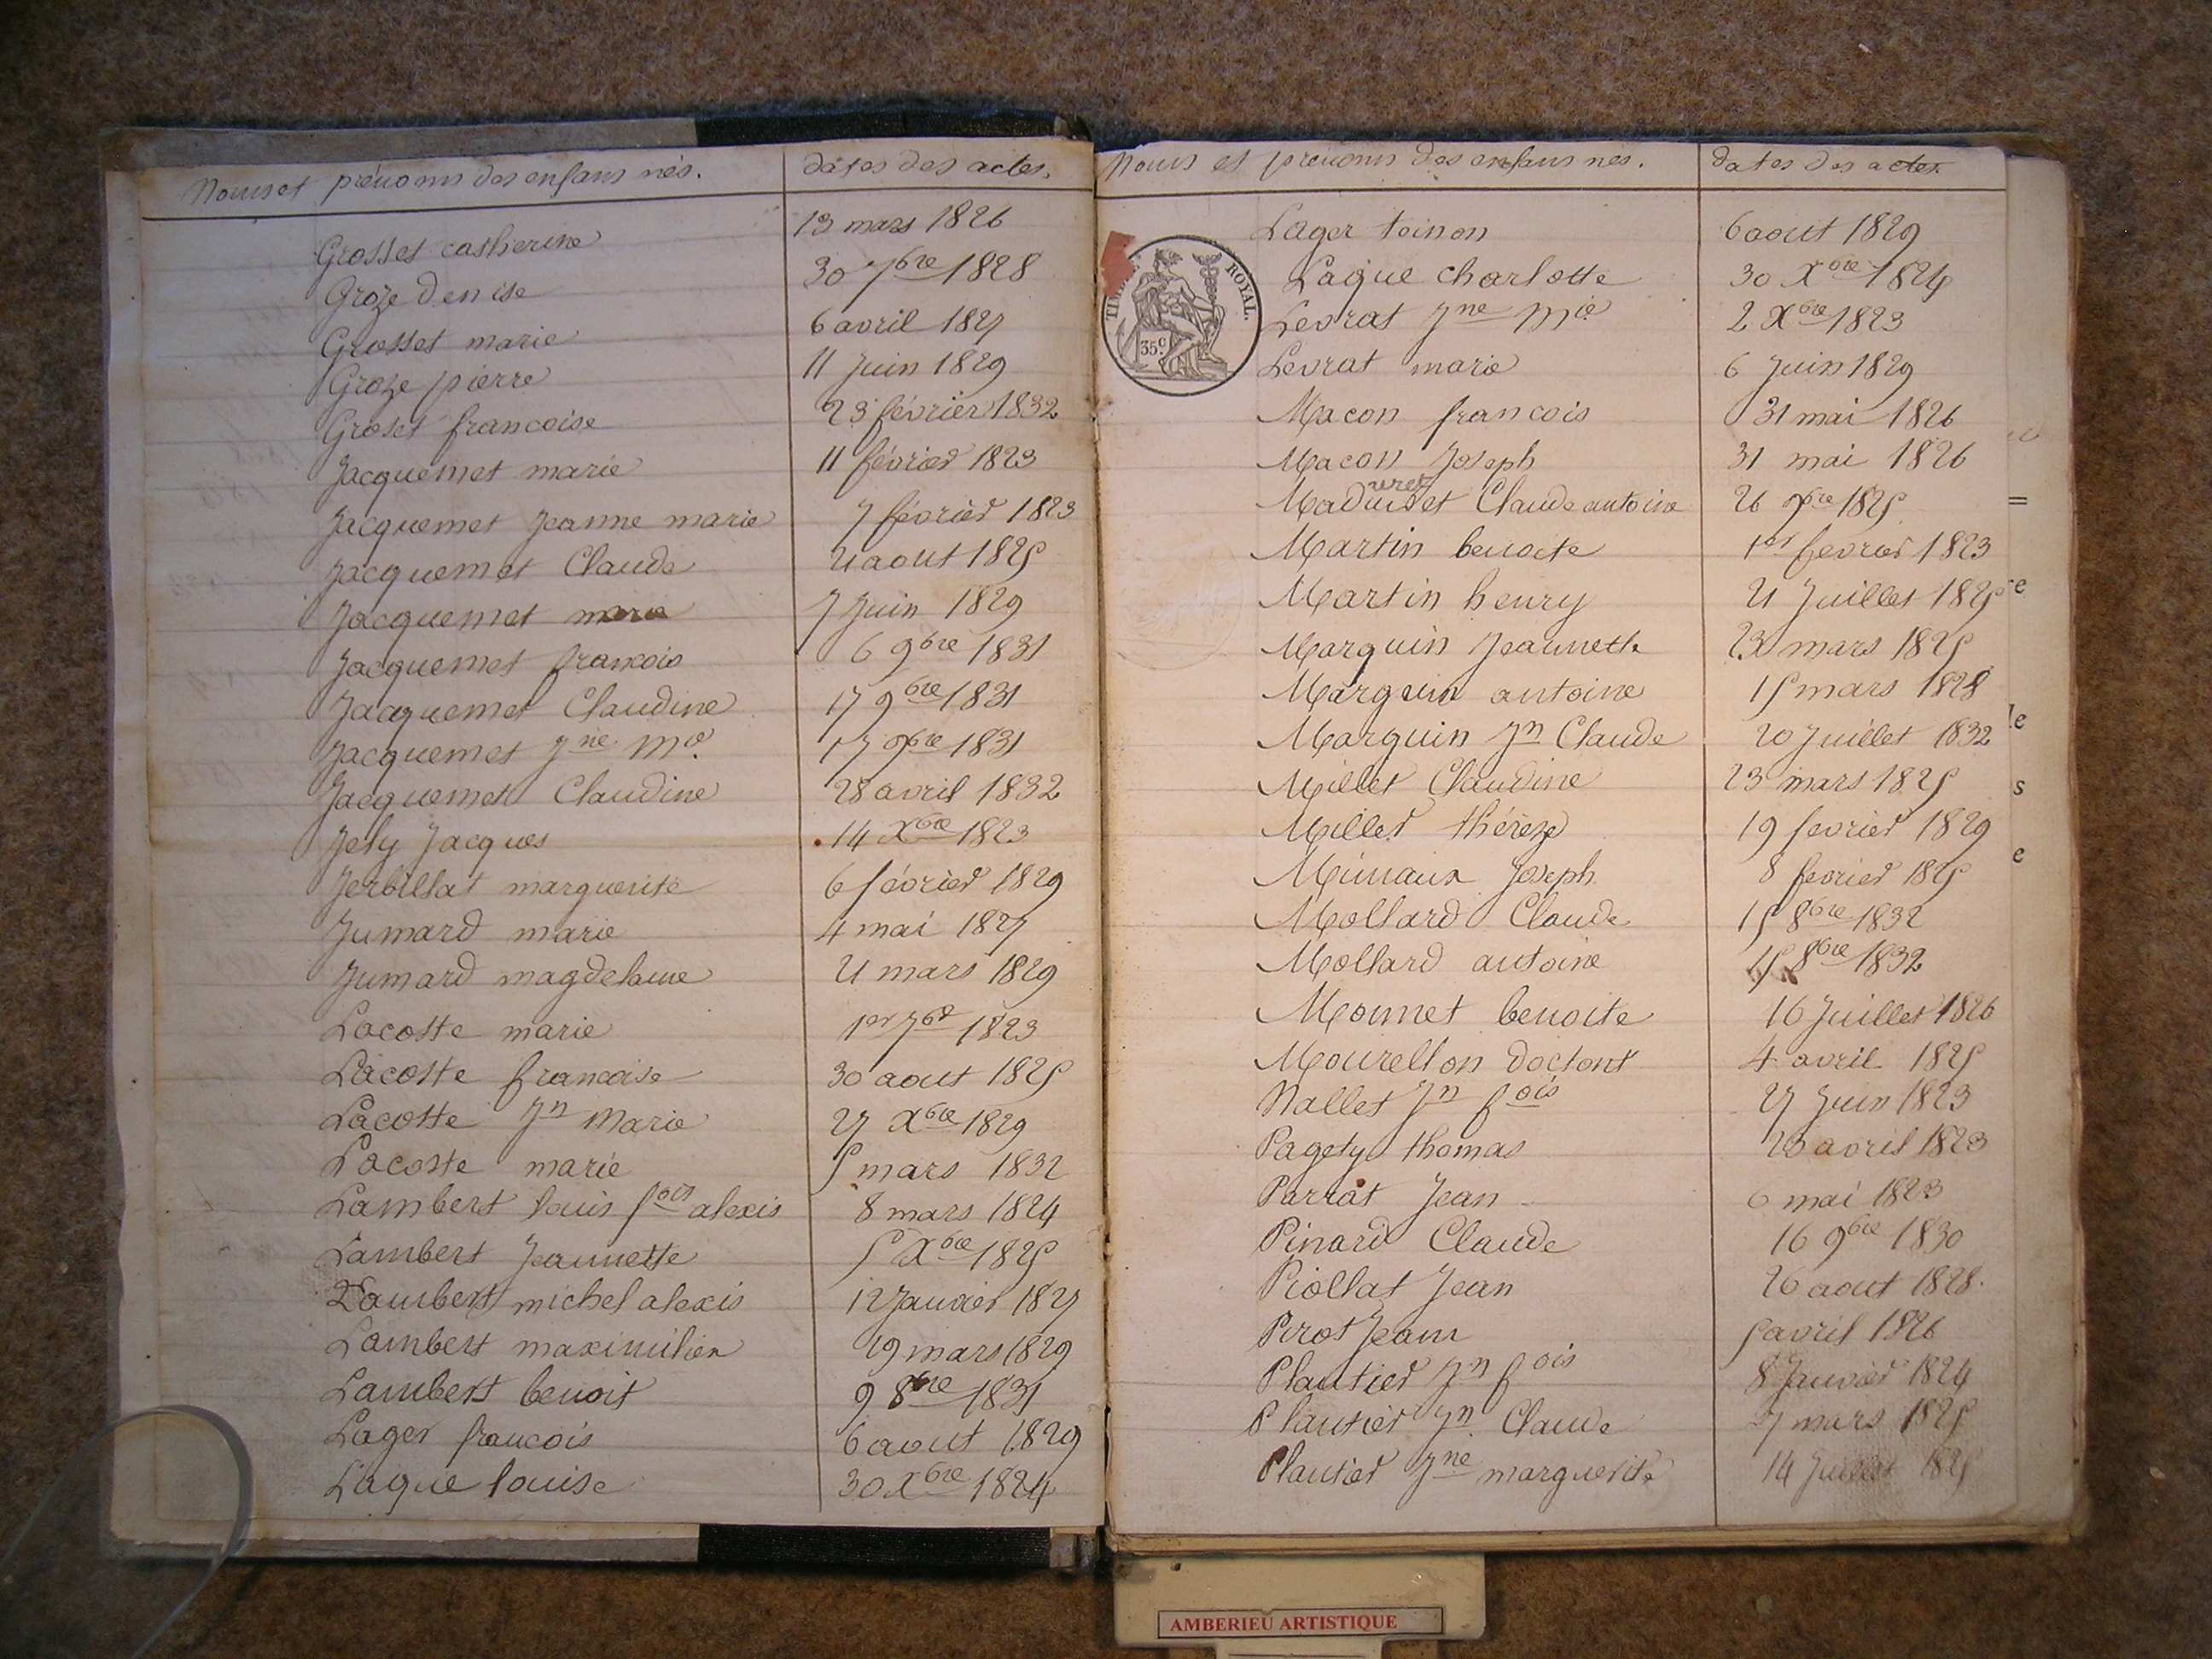 Noms et prénoms des enfans nés. dates des actes.
Grosset catherine 13 mars 1826
Groze denise 30 7bre 1828
Grosset marie 6 avril 1827
Groze pierre 11 Juin 1829
Groset francoise 23 février 1832
Jacquemet marie 11 février 1823
Jacquemet Jeanne marie 7 février 1823
Jacquemet Claude 21 aout 1825
Jacquemet marie 7 Juin 1829
Jacquemet francois 6 9bre 1831
Jacquemet Claudine 17 9bre 1831
Jacquemet Jne Mie 17 9bre 1831
Jacquemet Claudine 28 avril 1832
Jely Jacques 14 Xbre 1823
Jerbillat marguerite 6 février 1829
Jumard marie 4 mai 1827
Jumard magdelaine 21 mars 1829
Lacoste marie 1er 7bre 1823
Lacoste francoise 30 aout 1825
Lacoste Jn Marie 27 Xbre 1829
Lacoste marie 5 mars 1832
Lambert louis fois alexis 8 mars 1824
Lambert Jeannette 5 Xbre 1825
Lambert michel alexis 12 Janvier 1827
Lambert maximilien 29 mars 1829
Lambert benoit 9 8bre 1831
Lager francois 6 aout 1829
Laque louise 30 Xbre 1824
Noms et prenoms des enfans nés. dates des actes.
TIMBRE ROYAL.
35c.
Lager toinon 6 aout 1829
Laque charlotte 30 Xbre 1824
Levrat Jne Mie 2 Xbre 1823
Levrat marie 6 Juin 1829
Macon francois 31 mai 1826
Macon Joseph 31 mai 1826
uret
Maduiset Claude antoine 26 9bre 1825
Martin benoite 1er fevrier 1823
Martin henry 21 Juillet 1825
Marquin Jeannette 23 mars 1825
Marquin antoine 15 mars 1828
Marquin Jn Claude 20 Juillet 1832
Millet Claudine 23 mars 1825
Millet thérèze 19 fevrier 1829
Minaux Joseph 8 fevrier 1825
Mollard Claude 15 8bre 1832
Mollard antoine 15 8bre 1832
Monnet benoite 16 Juillet 1826
Mourellon doctont 4 avril 1825
Nallet Jn fois 27 Juin 1823
Pagety thomas 20 avril 1823
Parrat Jean 6 mai 1823
Pinard Claude 16 9bre 1830
Piollat Jean 26 aout 1828.
Pirot Jean 5 avril 1826
Plantier Jn fois 8 Janvier 1824
Plantier Jn Claude 27 mars 1825
Plantier Jne marguerite 14 Juillet 1825
AMBERIEU ARTISTIQUE